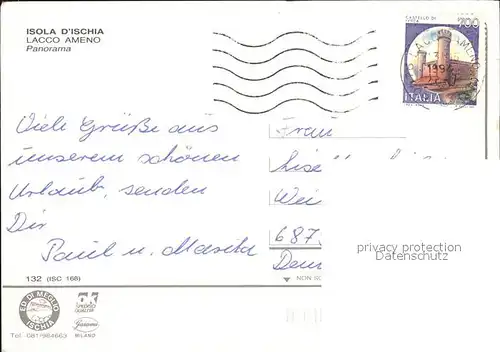 ISOLA D'ISCHIA
LACCO AMENO
Panorama
CASTELLO DI
700
LACCO AMENO
ITALIA
Viele Grüße aus
unserem schönen
Urlaub, senden
Dir
Paul u. Marita
Frau
687
privacy protection
Datenschutz
132 (ISC 168)
NON
ED. DI MEGLIO
ISCHIA
Tel. 081/984663
MILANO